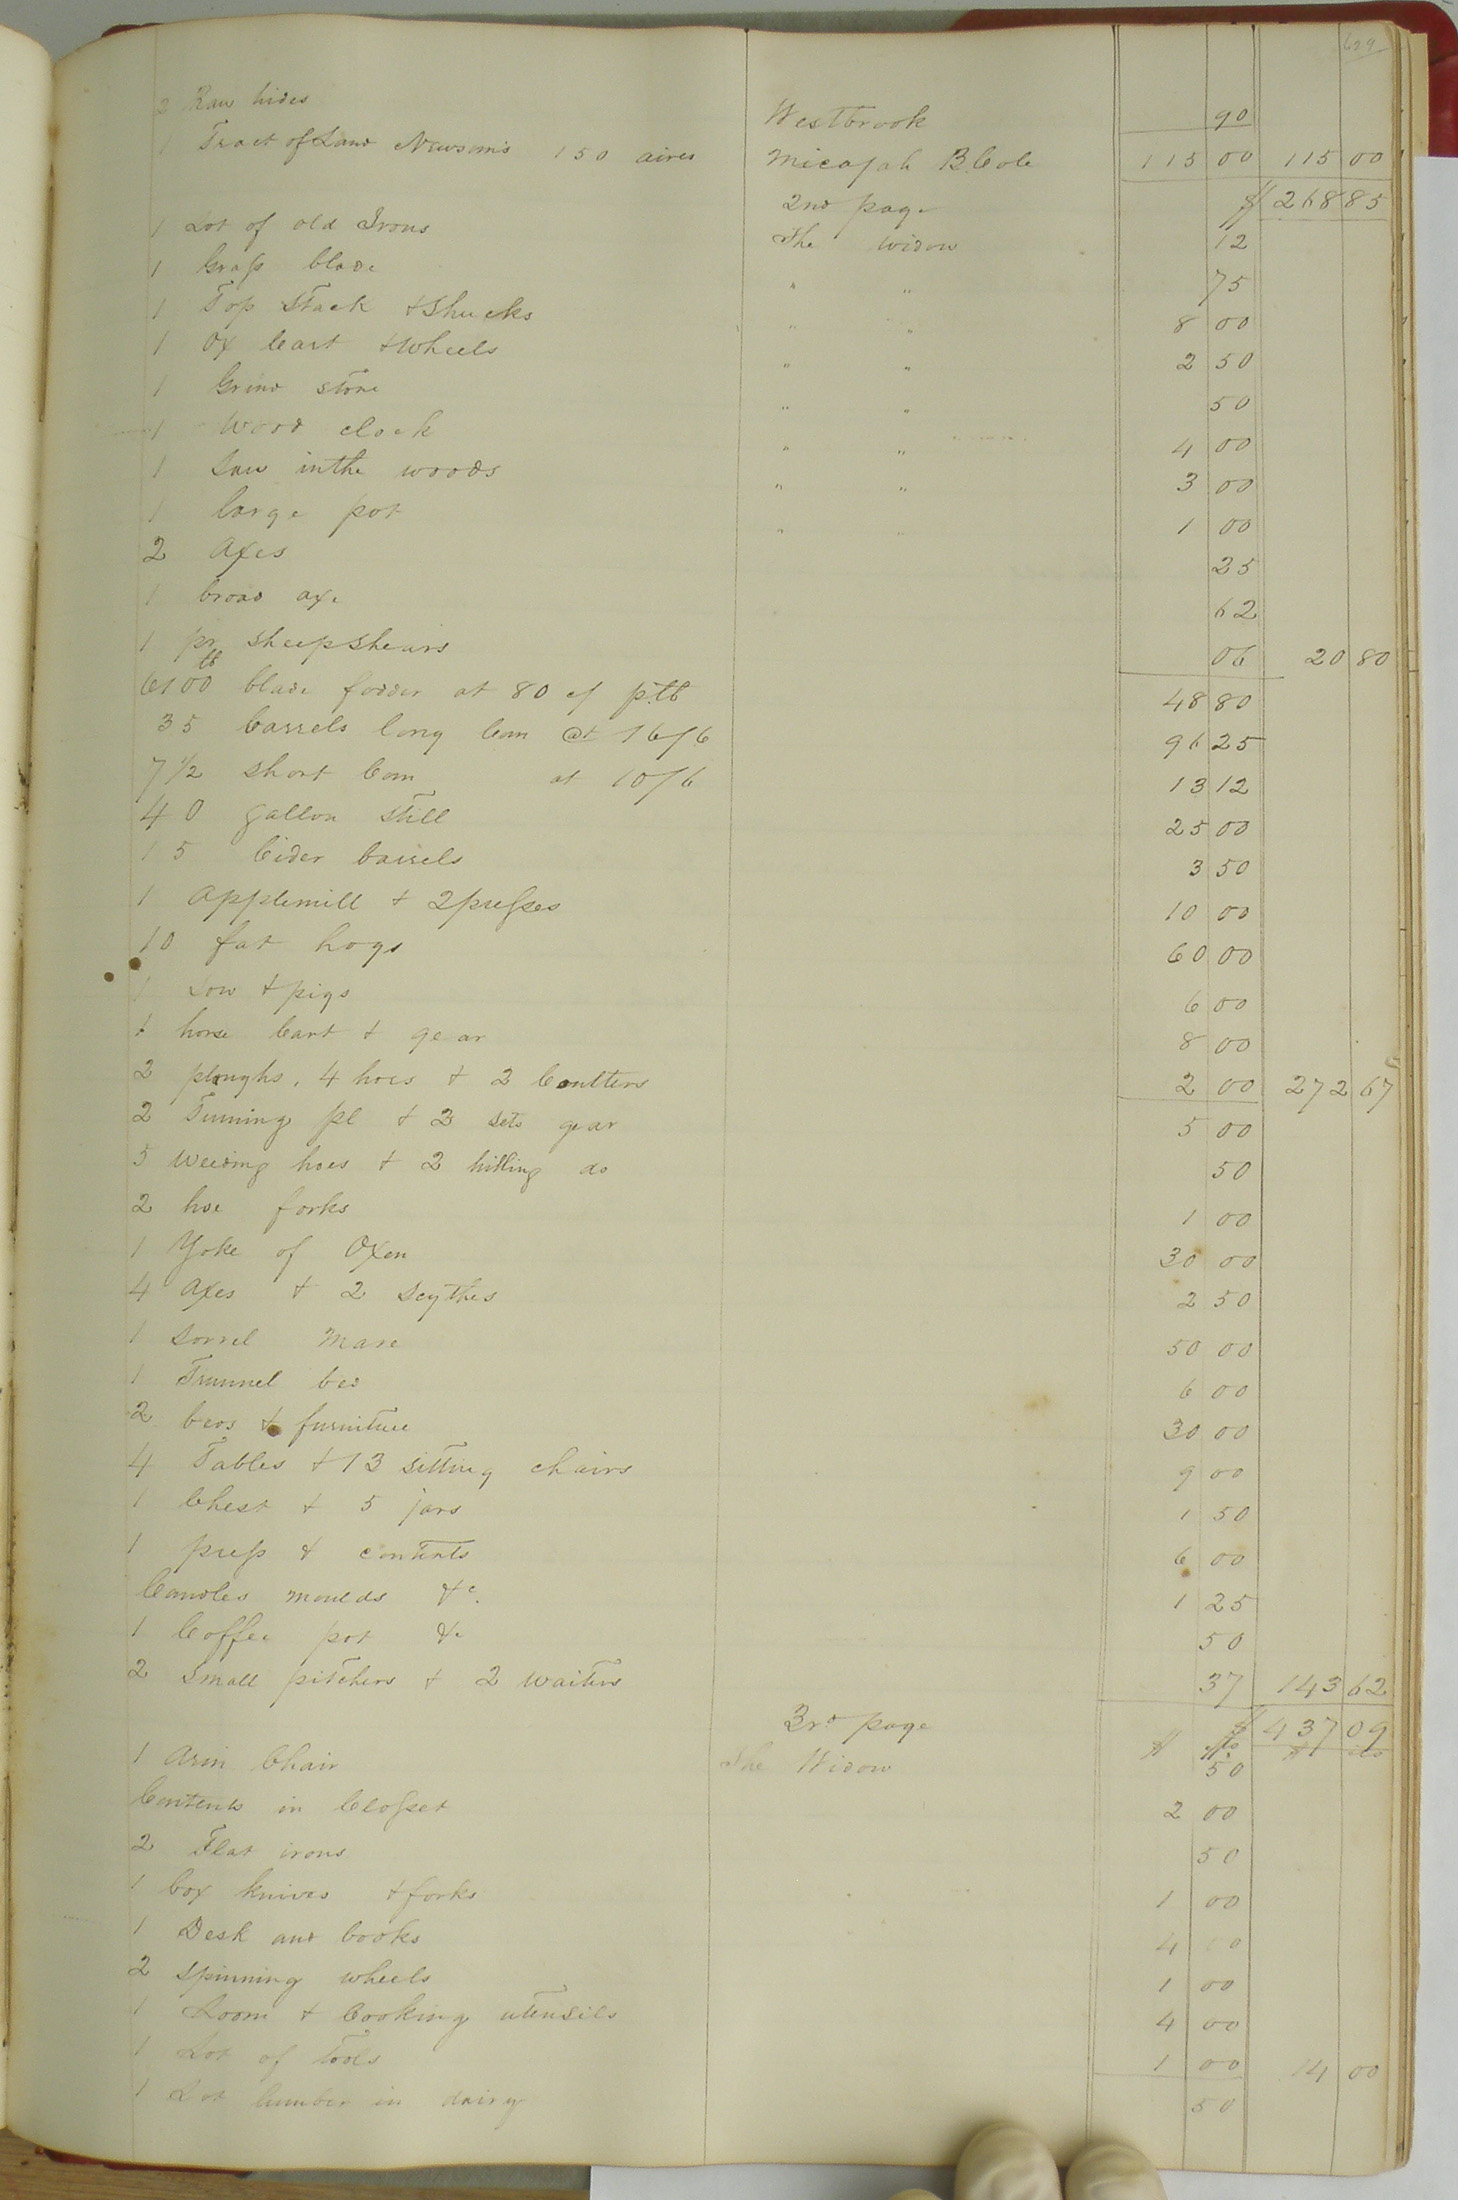 629
2 Raw hides Westbrook 90
1 Tract of Land Newsom's 150 acres Micajah B. Cole 115 00 115 00
2nd page $ 268 85
1 Lot of old Irons The widow 12
1 Grass blade " " 75
1 Top Stack + Shucks " " 8 00
1 Ox Cart + Wheels " " 2 50
1 Grind stone " " 50
1 Wood clock " " 4 00
1 Saw in the woods " " 3 00
1 large pot " " 1 00
2 Axes 25
1 broad axe 62
1 pr sheep shears 06 20 80
6100 lb blade fodder at 80 c/ p lb 48 80
35 barrels long Corn @t 16/6 96 25
7 1/2 short Corn at 10/6 13 12
40 gallon Still 25 00
15 Cider barrels 3 50
1 Applemill + 2 presses 10 00
10 fat hogs 60 00
1 Sow + pigs 6 00
1 horse Cart + gear 8 00
2 ploughs, 4 hoes + 2 Coulters 2 00 272 67
2 Turning pl + 2 sets gear 5 00
5 Weeding hoes + 2 hilling do 50
2 hoe forks 1 00
1 Yoke of Oxen 30 00
4 Axes + 2 Scythes 2 50
1 Sorrel Mare 50 00
1 Trunnel bed 6 00
2 beds + furniture 30 00
4 Tables + 13 sitting chairs 9 00
1 Chest + 5 jars 1 50
1 press & contents 6 00
Candles moulds &c. 1 25
1 Coffee pot &c 50
2 Small pitchers + 2 waiters 37 143 62
3rd page $ 437 09
1 Arm Chair The Widow 50
Contents in Closset 2 00
2 Flat irons 50
1 box knives + forks 1 00
1 Desk and books 4 00
2 Spinning wheels 1 00
1 Loom + Cooking utensils 4 00
1 Lot of Tools 1 00 14 00
1 Lot lumber in dairy 50